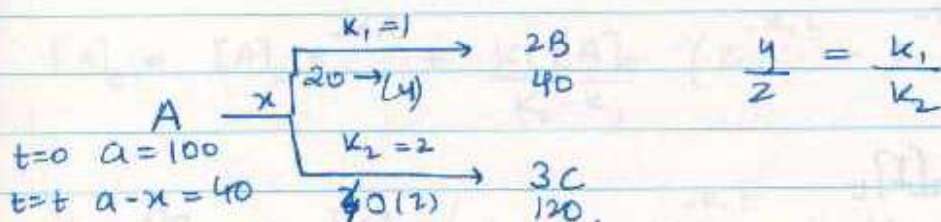 K₁ = 1
20 → (y)
2B
40
y/z = k₁/k₂
A
x
t=0 a = 100
K₂ = 2
t=t a - x = 40
40 (z)
3C
120.